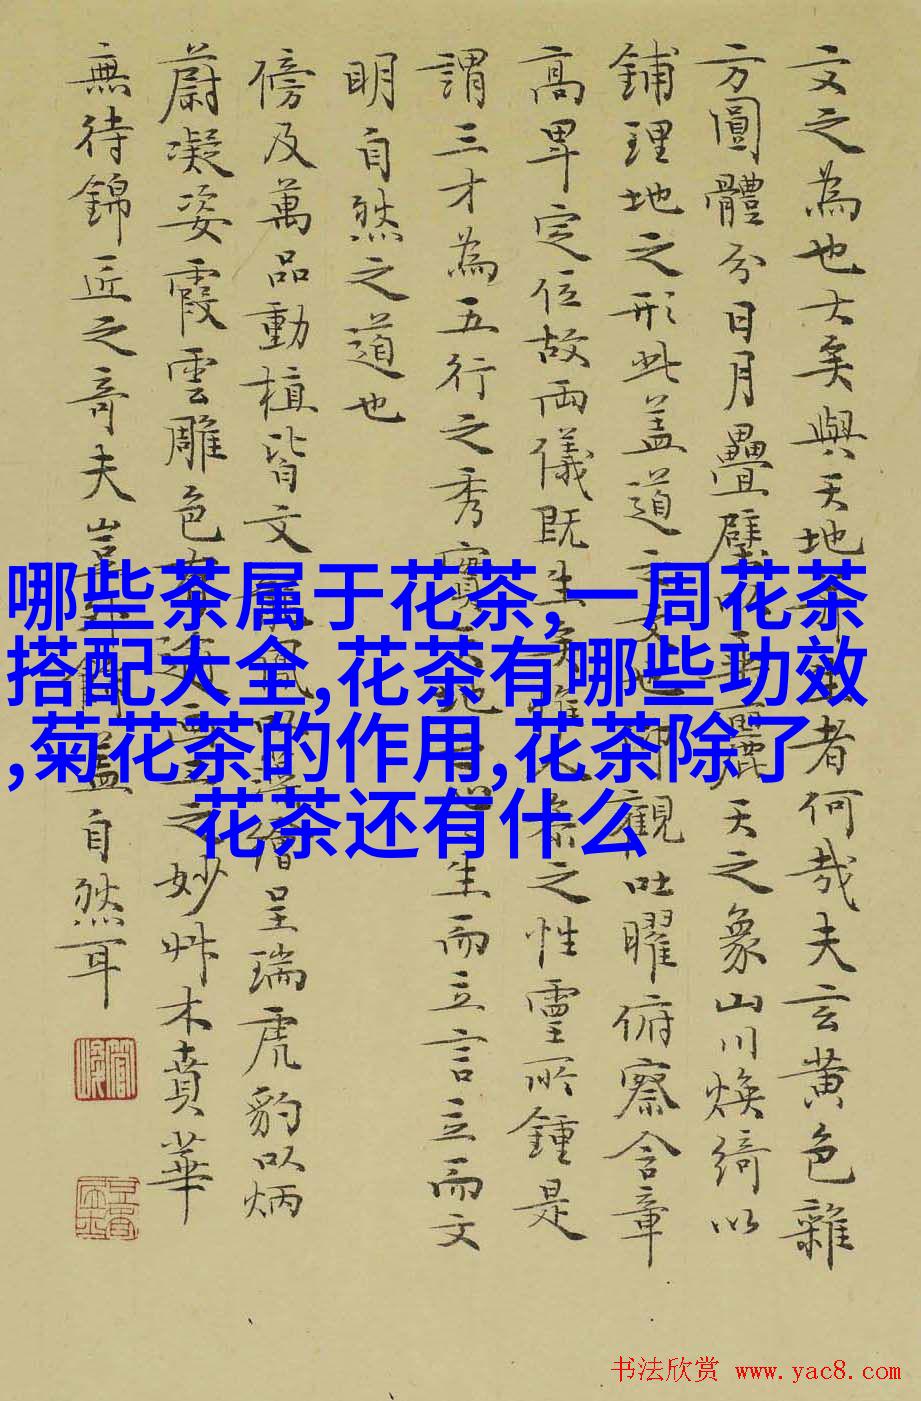 文之為也大矣與天地並生者何哉夫玄黃色雜
方圓體分日月疊璧以垂麗天之象山川煥綺以
鋪理地之形此蓋道之文也仰觀吐曜俯察含章
高卑定位故兩儀既生矣惟人參之性靈所鍾是
謂三才為五行之秀實天地生而立言立而文
明自然之道也
傍及萬品動植皆文繪呈瑞虎豹以炳
蔚凝姿霞雲雕色之妙艸木賁華
無待錦匠之奇夫豈外飾蓋自然耳
哪些茶属于花茶,一周花茶
搭配大全,花茶有哪些功效
,菊花茶的作用,花茶除了
花茶还有什么
书法欣赏 www.yac8.com